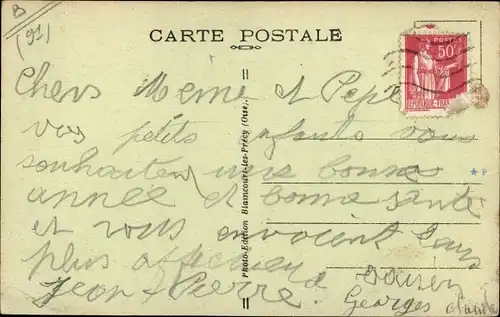 B
(91)
CARTE POSTALE
POSTES
50c
REPUBLIQUE FRAN
Chers Mémé et Pépé
vos petits enfants vous
souhaiten une bonne
année et bonne santé
et vous envoient leurs
plus affectueux
baisers
Jean & Pierre.
Georges Claude
Photo-Edition Blamcourt-les-Précy (Oise).